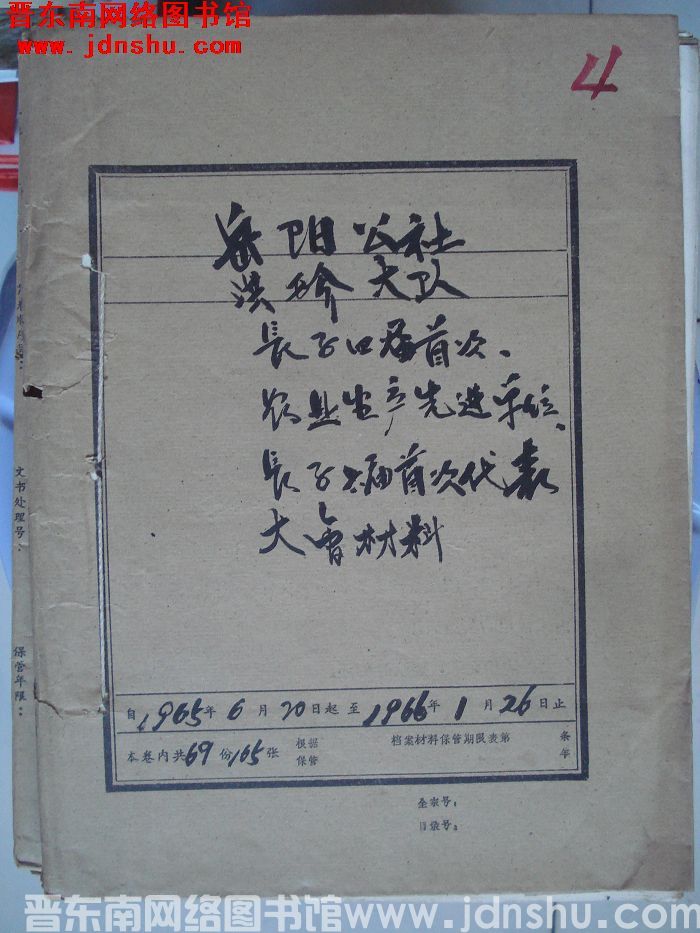 晋东南网络图书馆
www.jdnshu.com
4
岳阳公社
洪珍大队
長子四届首次、
农业生产先进单位、
長子六届首次代表
大会材料
文书处理号：
保管年限：
自1965年6月20日起至1966年1月26日止
本卷内共69份165张 根据保管 档案材料保管期限表第 条 年
全宗号：
目录号：
晋东南网络图书馆www.jdnshu.com